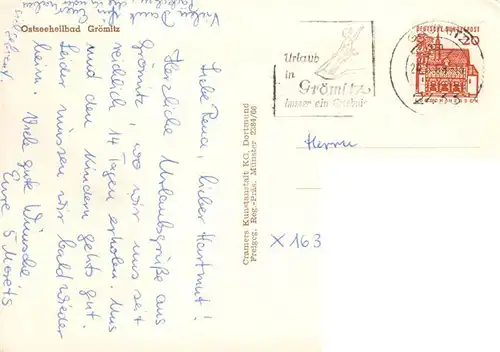 Ostseeheilbad Grömitz
Liebe Rena, lieber Hartmut!
Herzliche Urlaubsgrüße aus
Grömitz, wo wir uns seit
reichlich 14 Tagen erholen. Uns
und den Kindern gehts gut.
Leider müssen wir bald wieder
heim. Viele gute Wünsche
Eure 5 Moräts
Cramers Kunstanstalt KG, Dortmund
Freigeg. Reg.-Präs. Münster 2384/66
Urlaub
in
Grömitz
immer ein Erlebnis
DEUTSCHE BUNDESPOST
20
Herrn
X 163